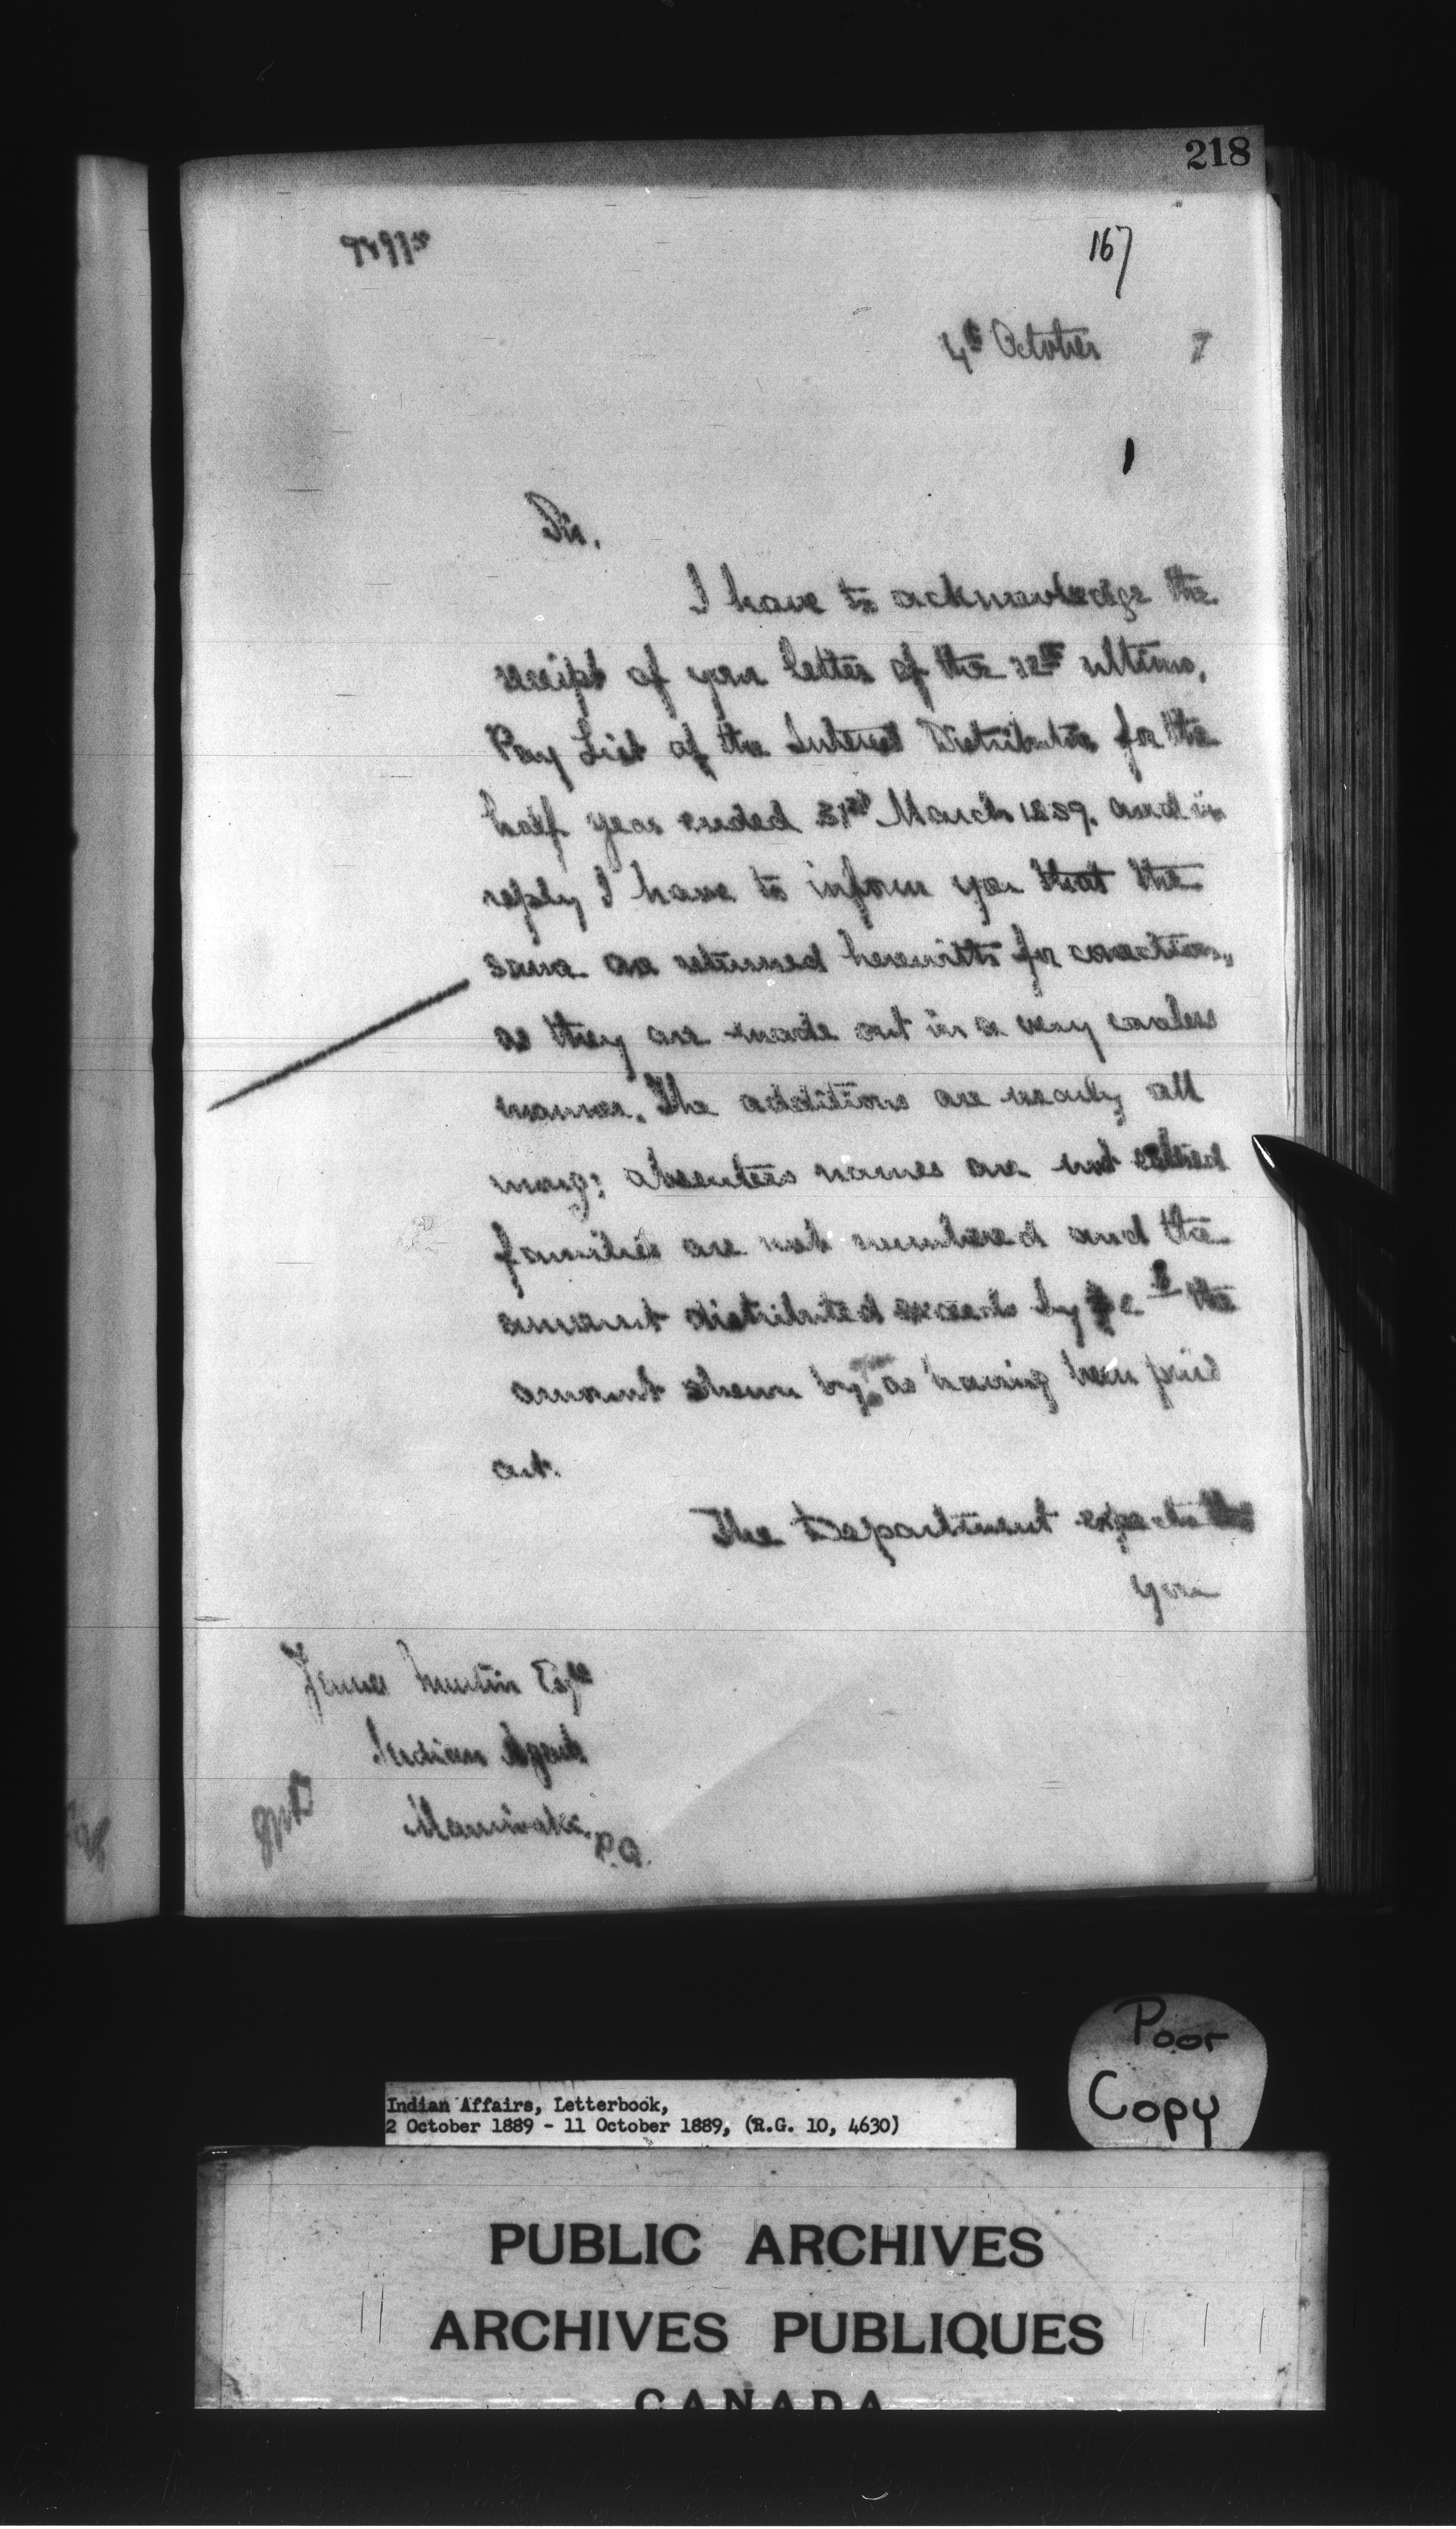 218
167
4th October
Sir,
I have to acknowledge the
receipt of your letter of the 12th ultimo,
Pay List of the Interest Distribution for the
half year ended 31st March 1889. and in
reply I have to inform you that the
same are returned herewith for correction,
as they are made out in a very careless
manner. The additions are nearly all
wrong; absentees names are not entered
families are not numbered and the
amount distributed exceeds by the
amount shewn by as having been paid
out.
The Department expects that
you
James Martin Esqre
Indian Agent
Maniwaki. P.Q.
Poor
Copy
Indian Affairs, Letterbook,
2 October 1889 - 11 October 1889, (R.G. 10, 4630)
PUBLIC ARCHIVES
ARCHIVES PUBLIQUES
CANADA